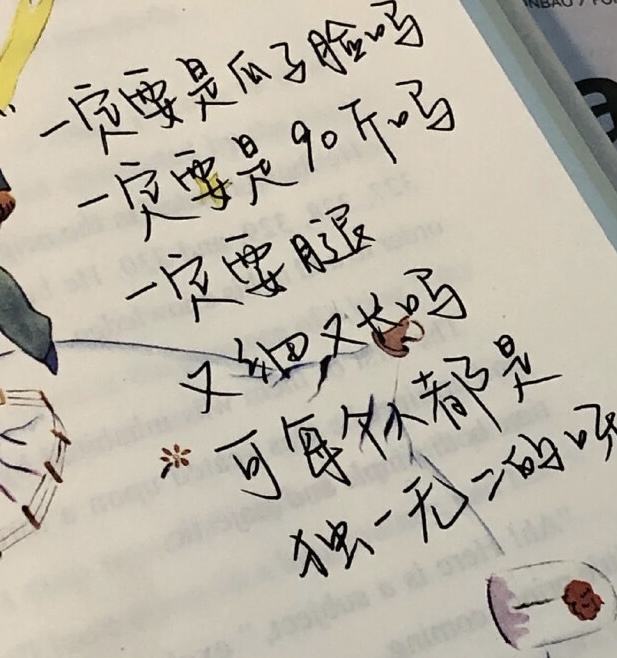 一定要是瓜子脸吗
一定要是90斤吗
一定要腿
又细又长吗
可每个人都是
独一无二的呀